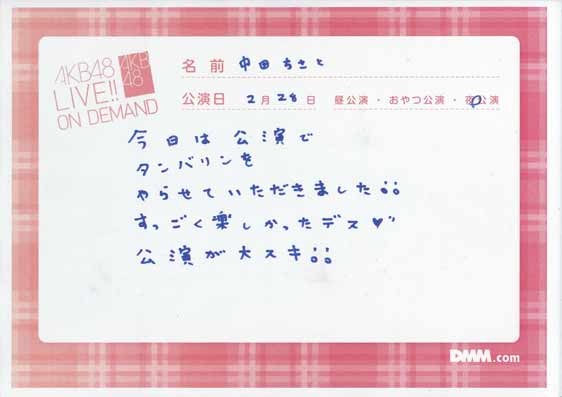 AKB48
LIVE!!
ON DEMAND
AKB
48
名前 中田ちさと
公演日 2月28日 昼公演・おやつ公演・夜公演
今日は公演で
タンバリンを
やらせていただきました!!
すっごく楽しかったデス♥"
公演が大スキ!!
DMM.com